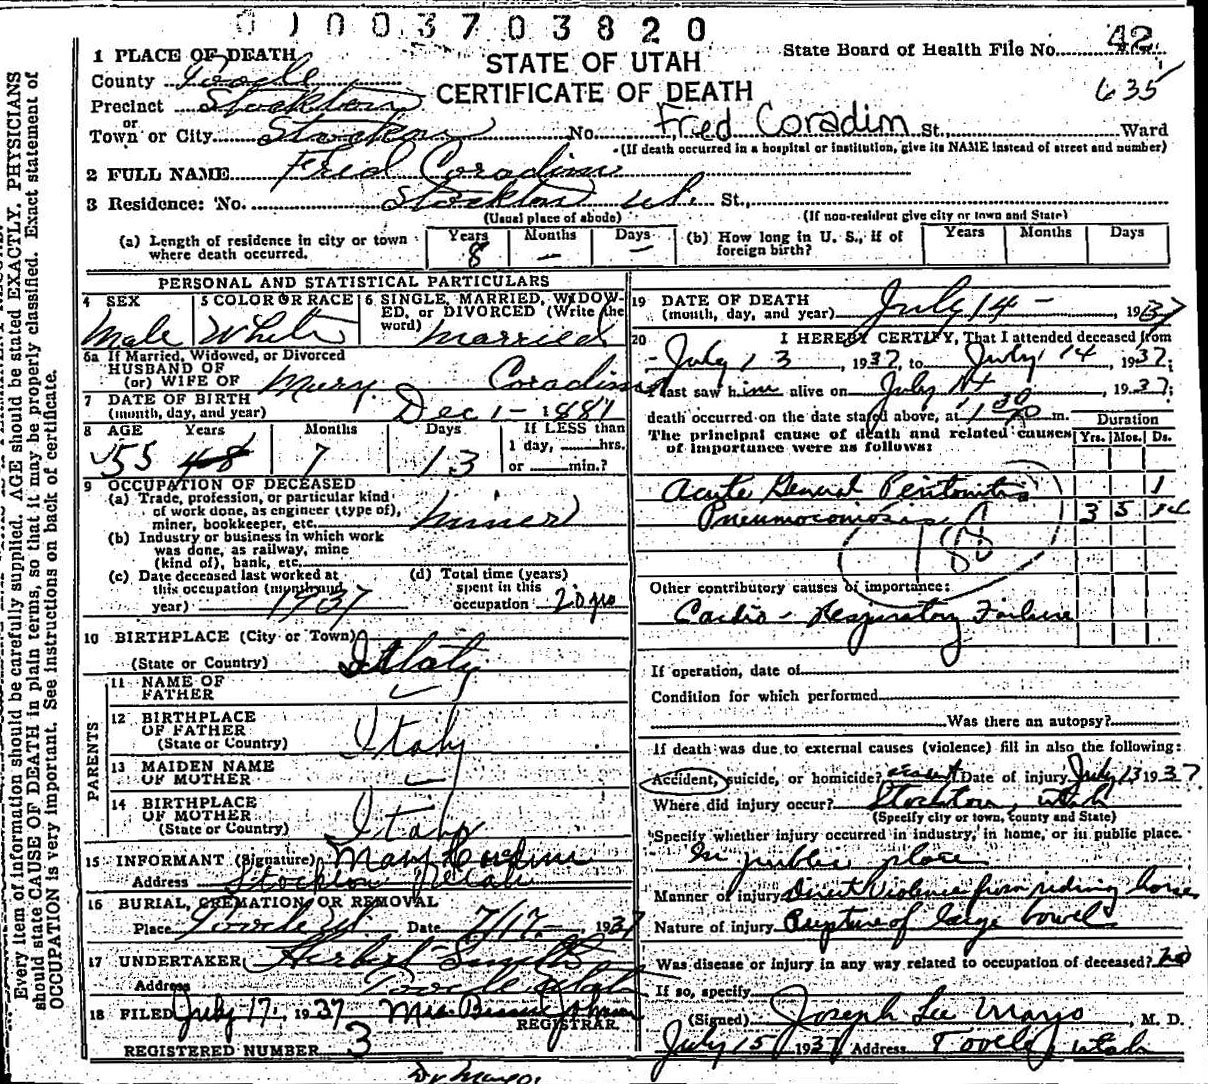 01003703820
42
635
STATE OF UTAH
CERTIFICATE OF DEATH
State Board of Health File No.
1 PLACE OF DEATH
County Tooele
Precinct Stockton
or
Town or City Stockton No. Fred Coradini St., Ward
(If death occurred in a hospital or institution, give its NAME instead of street and number)
2 FULL NAME Fred Coradini
3 Residence: No. Stockton Ut. St.,
(Usual place of abode) (If non-resident give city or town and State)
(a) Length of residence in city or town where death occurred. Years 8 Months — Days —
(b) How long in U. S., if of foreign birth? Years Months Days
PERSONAL AND STATISTICAL PARTICULARS
4 SEX Male
5 COLOR OR RACE White
6 SINGLE, MARRIED, WIDOWED, or DIVORCED (Write the word) Married
6a If Married, Widowed, or Divorced
HUSBAND OF
(or) WIFE OF Mary Coradini
7 DATE OF BIRTH
(month, day, and year) Dec 1 - 1881
8 AGE Years 55 48 Months 7 Days 13 If LESS than
1 day, hrs.
or min.?
9 OCCUPATION OF DECEASED
(a) Trade, profession, or particular kind
of work done, as engineer (type of),
miner, bookkeeper, etc. Miner
(b) Industry or business in which work
was done, as railway, mine
(kind of), bank, etc.
(c) Date deceased last worked at
this occupation (month and
year) 1937
(d) Total time (years)
spent in this
occupation 20 yrs
10 BIRTHPLACE (City or Town)
(State or Country) Italy
PARENTS
11 NAME OF
FATHER ✓
12 BIRTHPLACE
OF FATHER
(State or Country) Italy
13 MAIDEN NAME
OF MOTHER ✓
14 BIRTHPLACE
OF MOTHER
(State or Country) Italy
15 INFORMANT (Signature) Mary Coradini
Address Stockton Utah
16 BURIAL, CREMATION, OR REMOVAL
Place Tooele Ut. Date 7/17 - 1937
17 UNDERTAKER Herbert Smith
Address Tooele Utah
18 FILED July 17, 1937 Mrs. Johnson
REGISTRAR.
REGISTERED NUMBER 3
Dr Mayo.
19 DATE OF DEATH
(month, day, and year) July 14 -, 1937
20 I HEREBY CERTIFY, That I attended deceased from
July 13, 1937, to July 14, 1937;
I last saw him alive on July 14, 1937;
death occurred on the date stated above, at 1 30 m.
The principal cause of death and related causes
of importance were as follows:
Duration
Yrs. Mos. Ds.
Acute General Peritonitis 1
Pneumoconiosis 3 5
188
Other contributory causes of importance:
Cardio - Respiratory Failure
If operation, date of
Condition for which performed
Was there an autopsy?
If death was due to external causes (violence) fill in also the following:
Accident, suicide, or homicide? Date of injury July 13 1937
Where did injury occur? Stockton, Utah
(Specify city or town, county and State)
Specify whether injury occurred in industry, in home, or in public place.
In public place
Manner of injury Direct Violence from riding horse
Nature of injury Rupture of large bowel
Was disease or injury in any way related to occupation of deceased? no
If so, specify
(Signed) Joseph Lee Mayo, M. D.
July 15 1937 Address Tooele, Utah
Every item of information should be carefully supplied. AGE should be stated EXACTLY. PHYSICIANS
should state CAUSE OF DEATH in plain terms, so that it may be properly classified. Exact statement of
OCCUPATION is very important. See instructions on back of certificate.